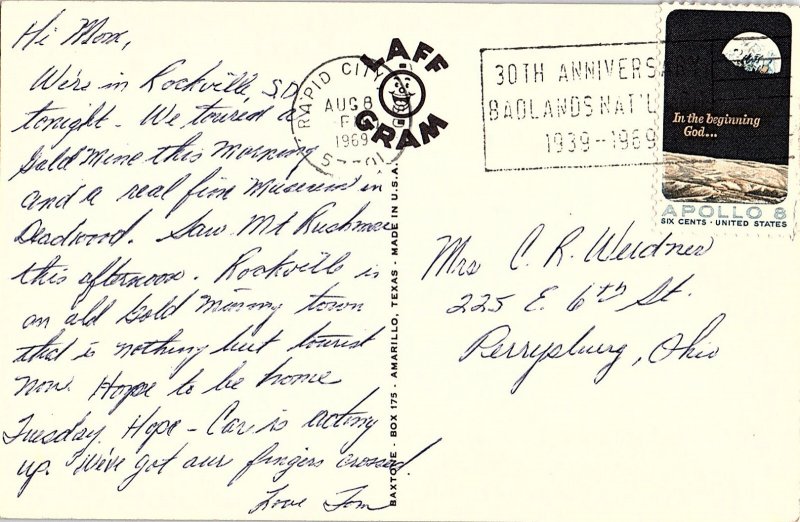 Hi Mom,
We're in Rockville S.D.
tonight - We toured a
Gold Mine this morning
and a real fine Museum in
Deadwood. Saw Mt Rushmore
this afternoon. Rockville is
an old Gold Mining town
that is nothing but tourist
now. Hope to be home
Tuesday. Hope - Car is acting
up. We've got our fingers crossed.
Love Tom
LAFF
GRAM
RAPID CITY
AUG 8
1969
30TH ANNIVERSA
BADLANDS NAT'L
1939--1969
In the beginning
God...
APOLLO 8
SIX CENTS · UNITED STATES
Mrs C. R. Weidner
225 E. 6th St.
Perrysburg, Ohio
BAXTONE - BOX 175 - AMARILLO, TEXAS - MADE IN U.S.A.